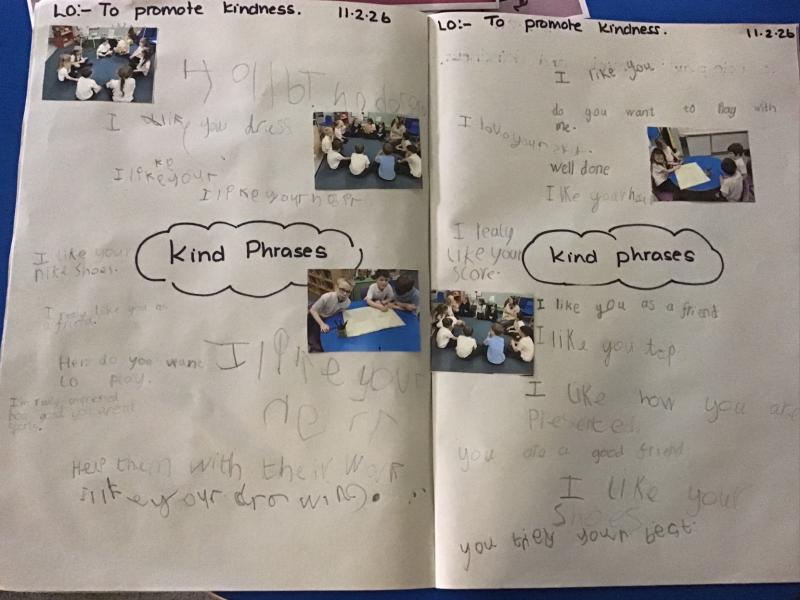 LO:- To promote kindness. 11.2.26
I like you dress
I like your
I like your hear
I like your
nike shoes.
Kind Phrases
I really like you as
a friend.
Her do you want
to play.
I'm really impressed
how good you are at
I like your
Help them with their work
I like your drowing.
LO:- To promote kindness. 11.2.26
I like you
do you want to Play with
me.
I love your
well done
I like your hair
I lealy
like your
score.
kind phrases
I like you as a friend
I like you top
I like how you are
Presented
you are a good friend
I like your
Shoes
you tried your best.